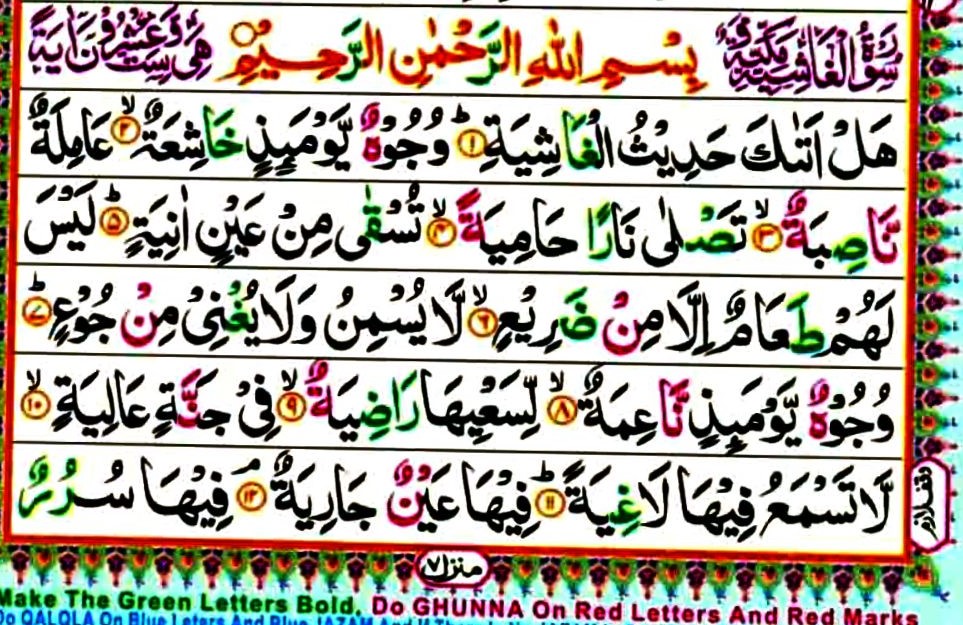 سُوْرَةُ الْغَاشِيَةِ مَكِّيَّةٌ بِسْمِ اللهِ الرَّحْمٰنِ الرَّحِيْمِ هِيَ سِتٌّ وَّعِشْرُوْنَ اٰيَةً
هَلْ اَتٰىكَ حَدِيْثُ الْغَاشِيَةِ ؕ﴿۱﴾ وُجُوْهٌ يَّوْمَىِٕذٍ خَاشِعَةٌ ۙ﴿۲﴾ عَامِلَةٌ
نَّاصِبَةٌ ۙ﴿۳﴾ تَصْلٰى نَارًا حَامِيَةً ۙ﴿۴﴾ تُسْقٰى مِنْ عَيْنٍ اٰنِيَةٍ ؕ﴿۵﴾ لَيْسَ
لَهُمْ طَعَامٌ اِلَّا مِنْ ضَرِيْعٍ ۙ﴿۶﴾ لَّا يُسْمِنُ وَلَا يُغْنِىْ مِنْ جُوْعٍ ؕ﴿۷﴾
وُجُوْهٌ يَّوْمَىِٕذٍ نَّاعِمَةٌ ۙ﴿۸﴾ لِّسَعْيِهَا رَاضِيَةٌ ۙ﴿۹﴾ فِىْ جَنَّةٍ عَالِيَةٍ ۙ﴿۱۰﴾
لَّا تَسْمَعُ فِيْهَا لَاغِيَةً ؕ﴿۱۱﴾ فِيْهَا عَيْنٌ جَارِيَةٌ ۘ﴿۱۲﴾ فِيْهَا سُرُرٌ
منزل ۷
Make The Green Letters Bold. Do GHUNNA On Red Letters And Red Marks
Do QALQLA On Blue Leters And Blue JAZAM And